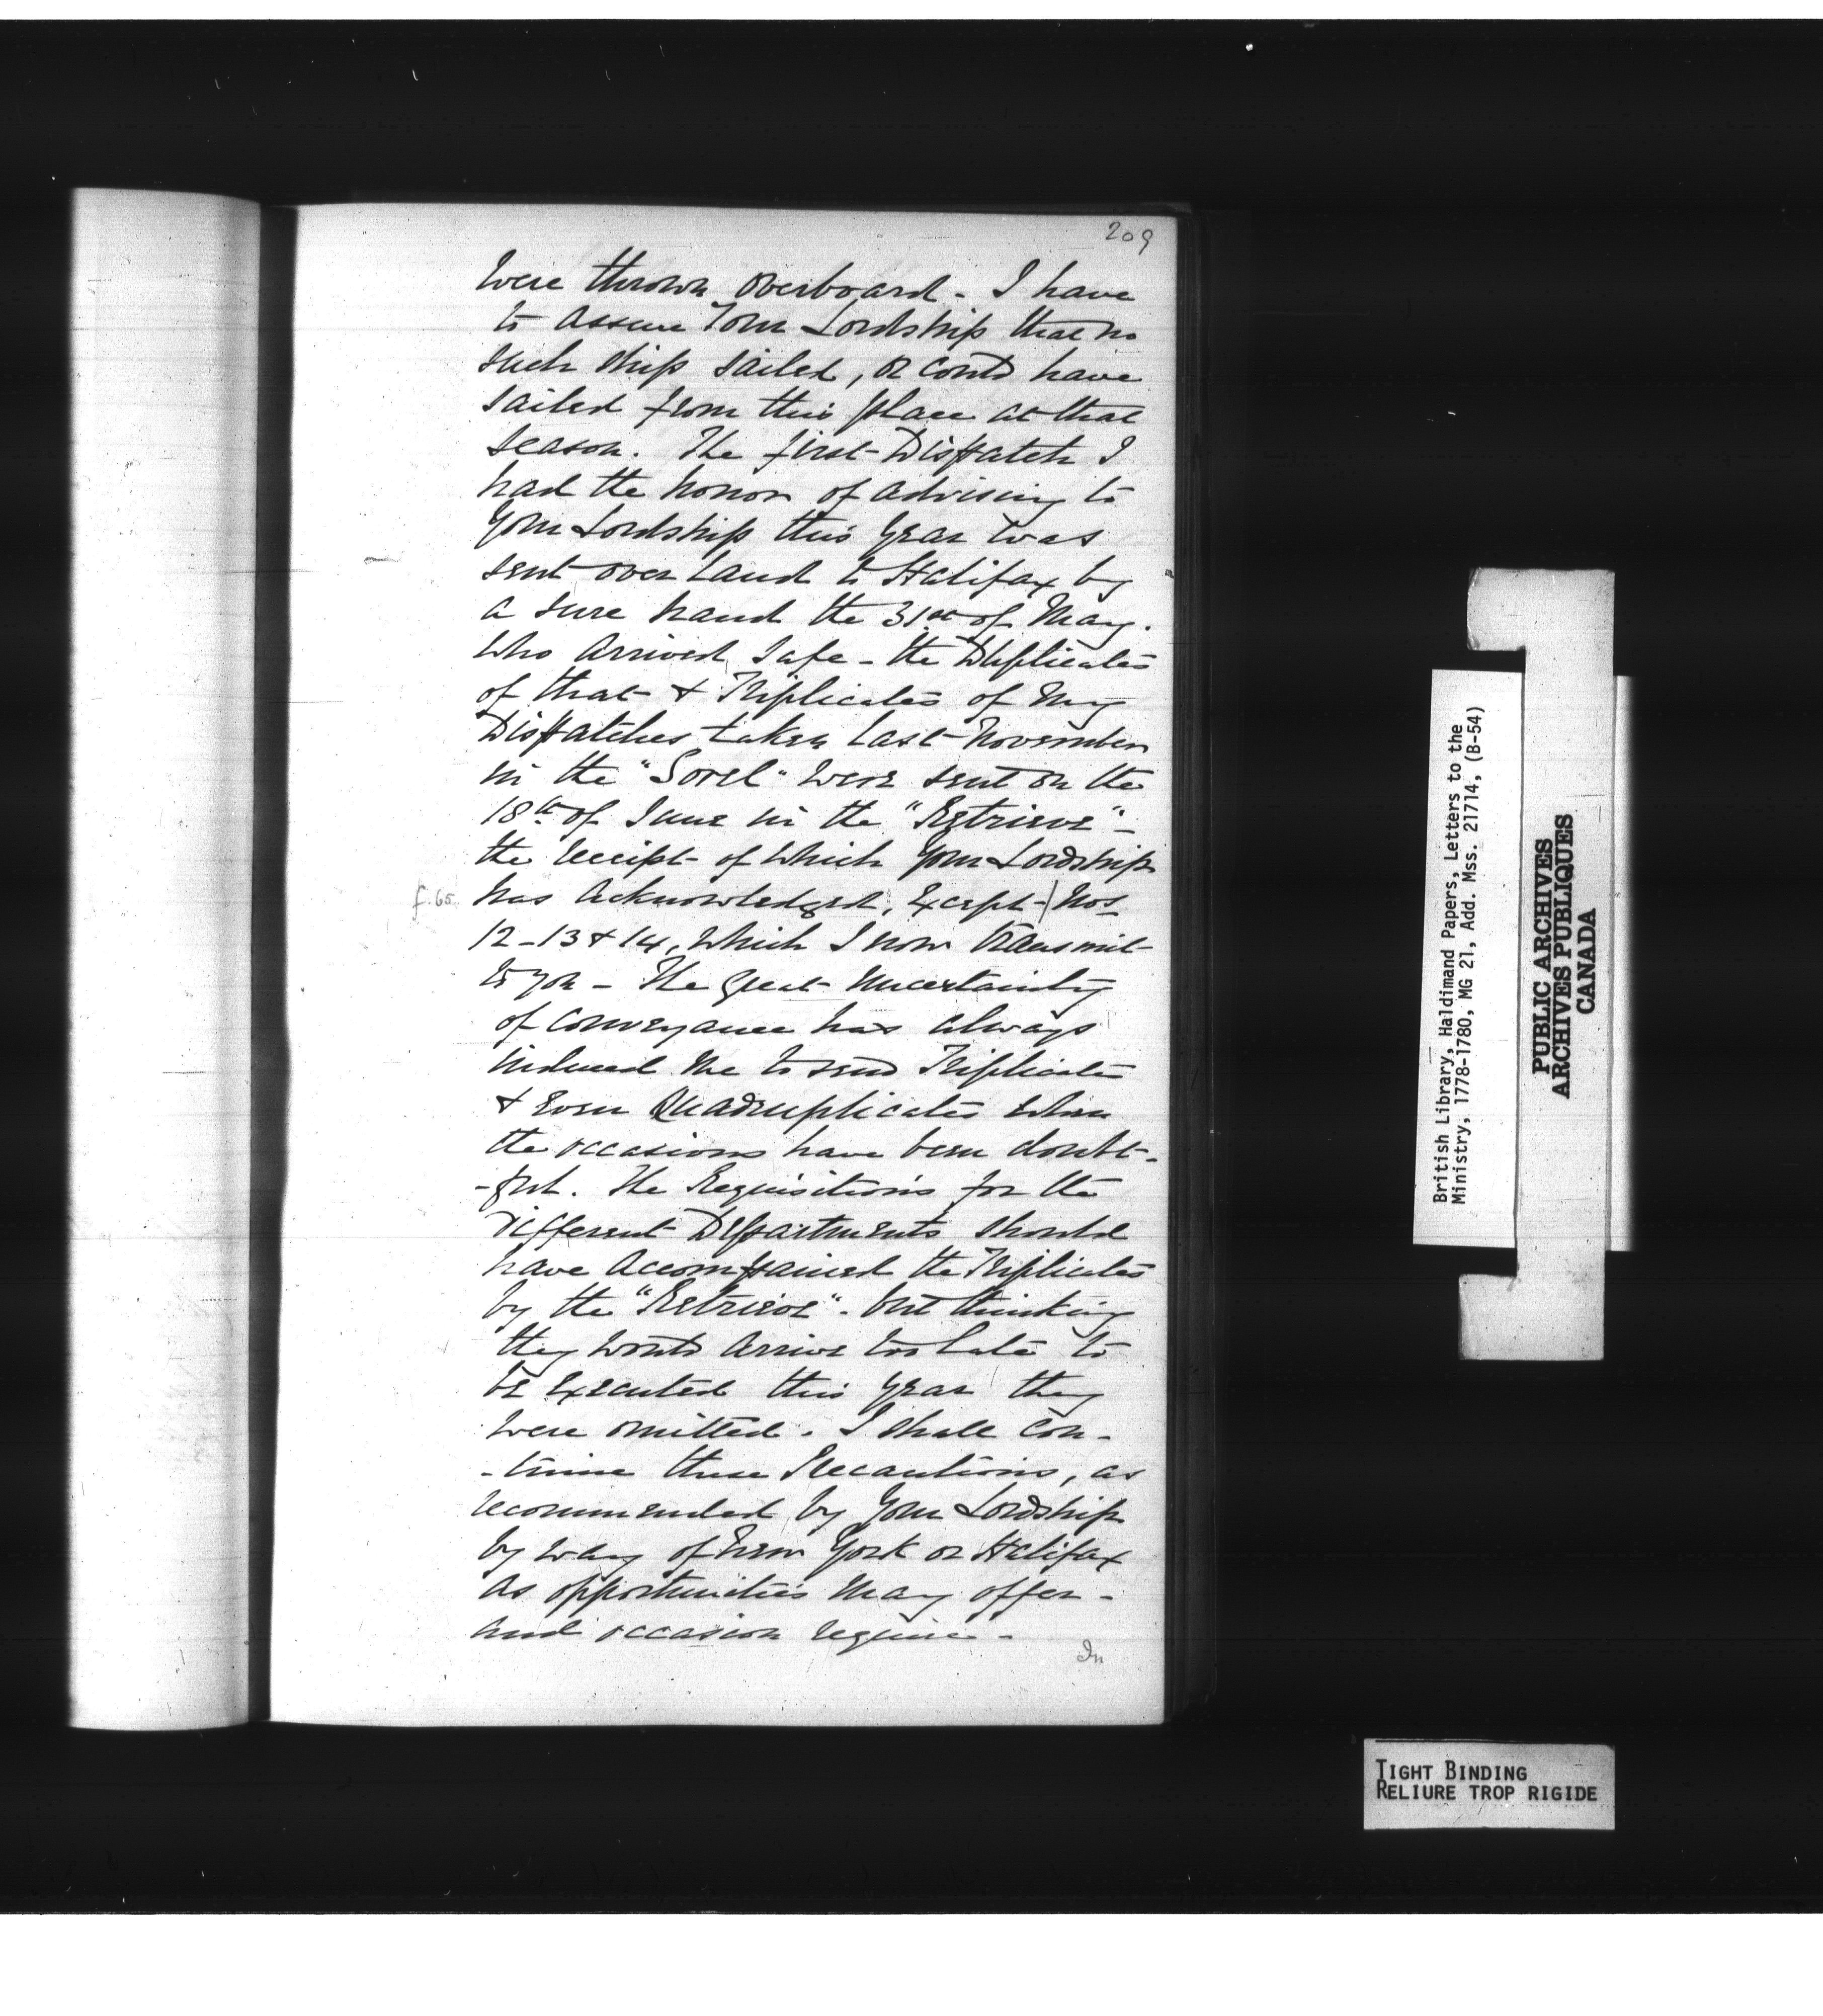 209
were thrown overboard - I have
to assure Your Lordship that no
such ship sailed, or could have
sailed from this place at that
season. The first Dispatch I
had the honor of advising to
Your Lordship this year was
sent over Land to Halifax by
a sure hand the 31st of May.
who arrived safe - the Duplicates
of that & Triplicates of my
Dispatches taken last November
in the "Sorel" were sent on the
18th of June in the "Retrieve" -
the receipt of which Your Lordship
f. 65 has acknowledged, Except Nos
12-13 & 14, which I now transmit
to you - The great uncertainty
of conveyance has always
induced me to send Triplicates
& even Quadruplicates when
the occasions have been doubt-
-ful. The Requisitions for the
different Departments should
have accompanied the Triplicates
by the "Retrieve" - but thinking
they would arrive too late to
be executed this year they
were omitted. I shall con-
-tinue these Precautions, as
recommended by Your Lordship
by way of New York or Halifax
as opportunities may offer -
and occasion require -
In
British Library, Haldimand Papers, Letters to the
Ministry, 1778-1780, MG 21, Add. Mss. 21714, (B-54)
PUBLIC ARCHIVES
ARCHIVES PUBLIQUES
CANADA
TIGHT BINDING
RELIURE TROP RIGIDE